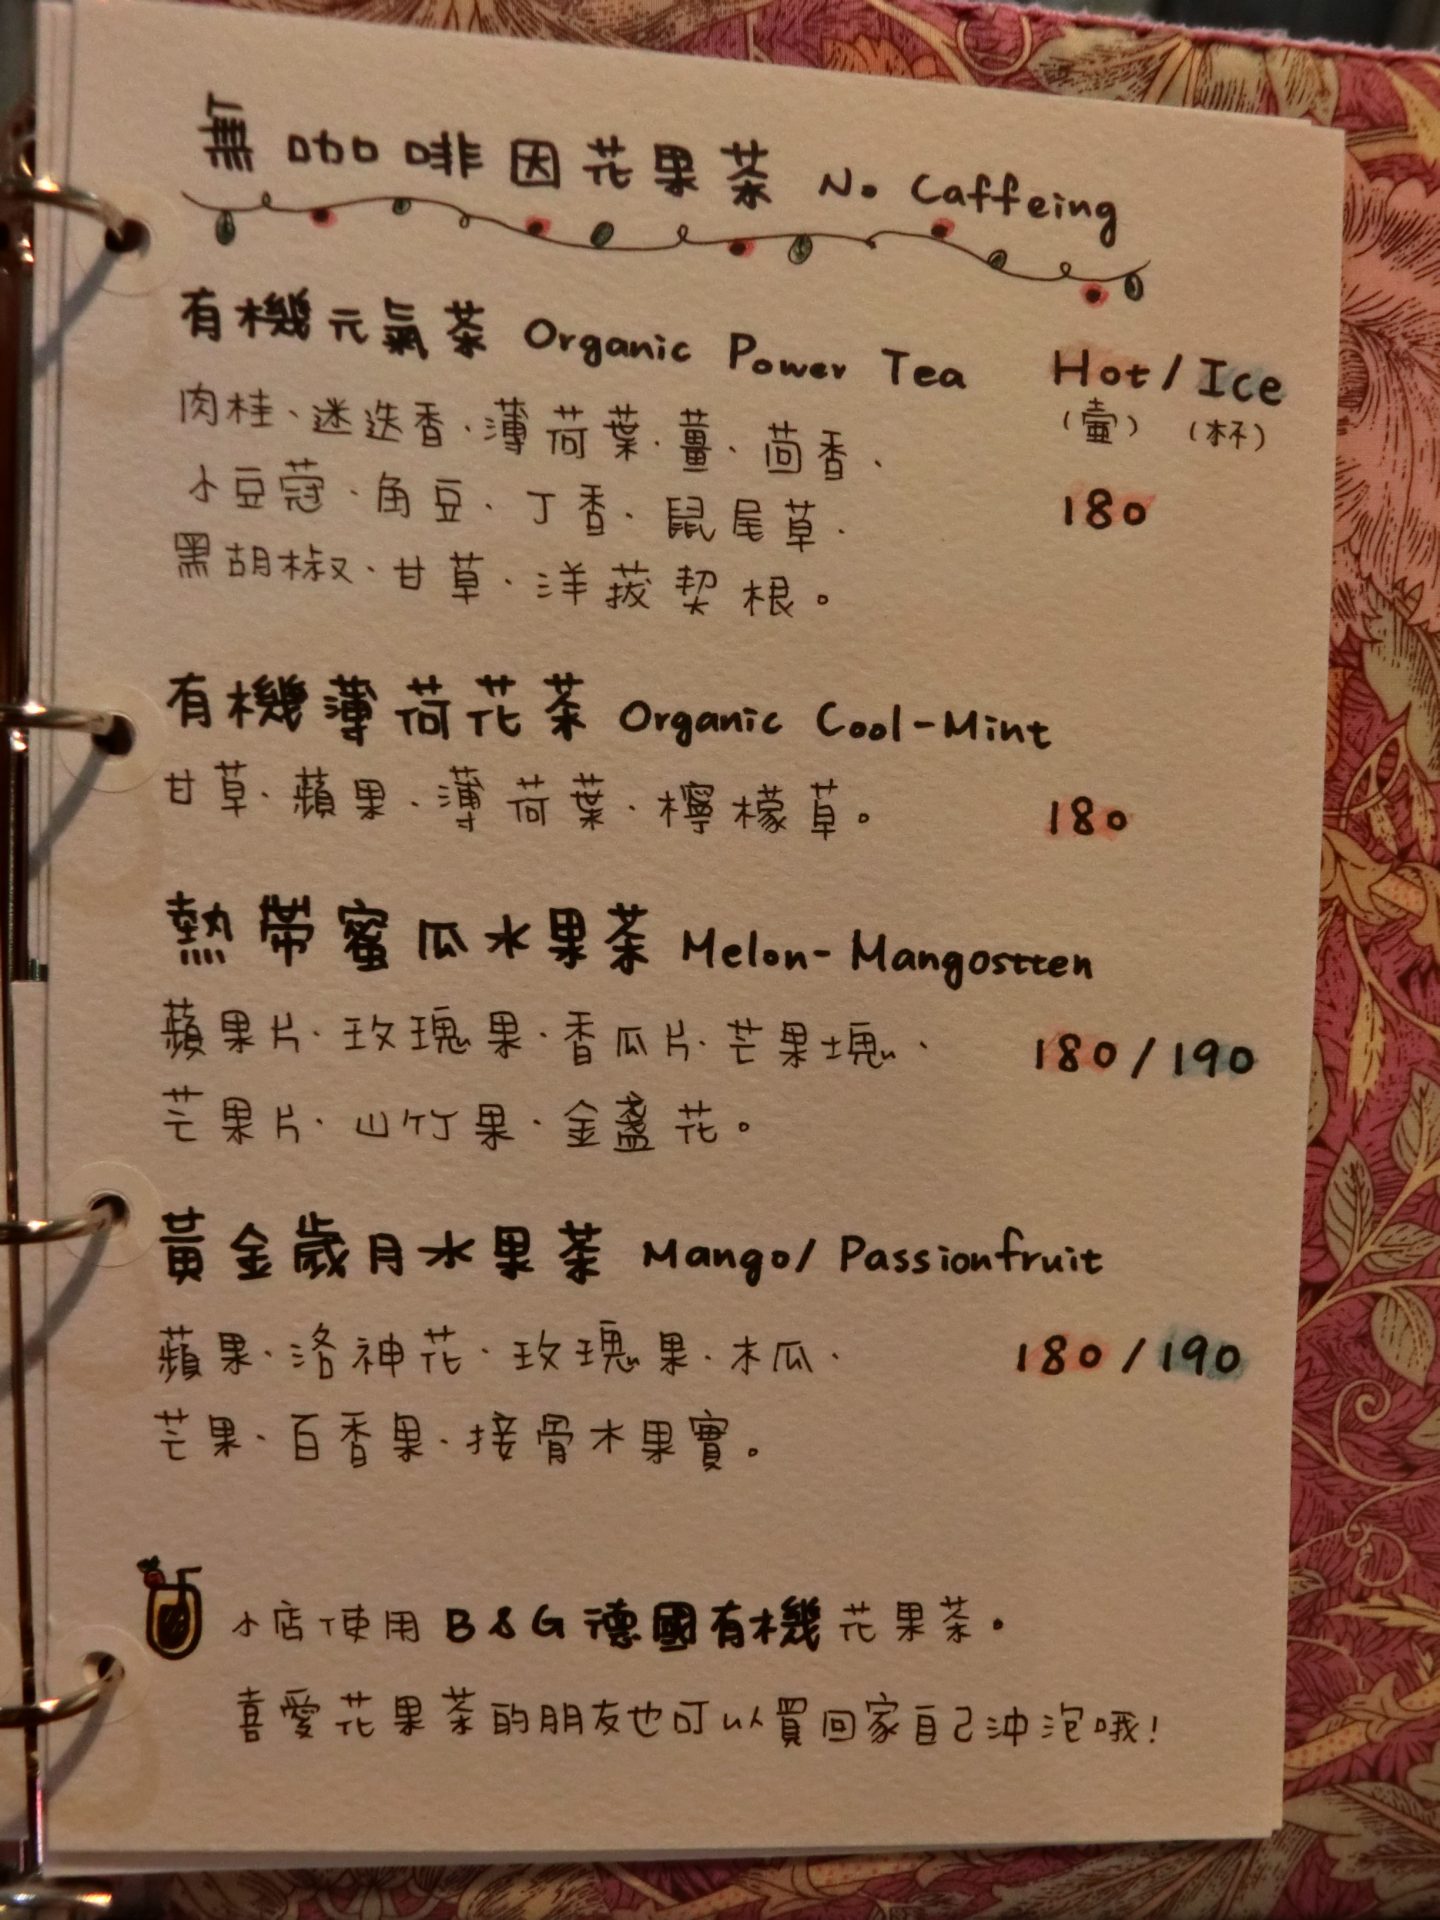 無咖啡因花果茶 No Caffeing
有機元氣茶 Organic Power Tea Hot / Ice
（壺） （杯）
肉桂、迷迭香、薄荷葉、薑、茴香、
小豆蔻、角豆、丁香、鼠尾草、 180
黑胡椒、甘草、洋菝契根。
有機薄荷花茶 Organic Cool-Mint
甘草、蘋果、薄荷葉、檸檬草。 180
熱帶蜜瓜水果茶 Melon-Mangostten
蘋果片、玫瑰果、香瓜片、芒果塊、 180 / 190
芒果片、山竹果、金盞花。
黃金歲月水果茶 Mango/ Passionfruit
蘋果、洛神花、玫瑰果、木瓜、 180 / 190
芒果、百香果、接骨木果實。
小店使用B&G德國有機花果茶。
喜愛花果茶的朋友也可以買回家自己沖泡哦!